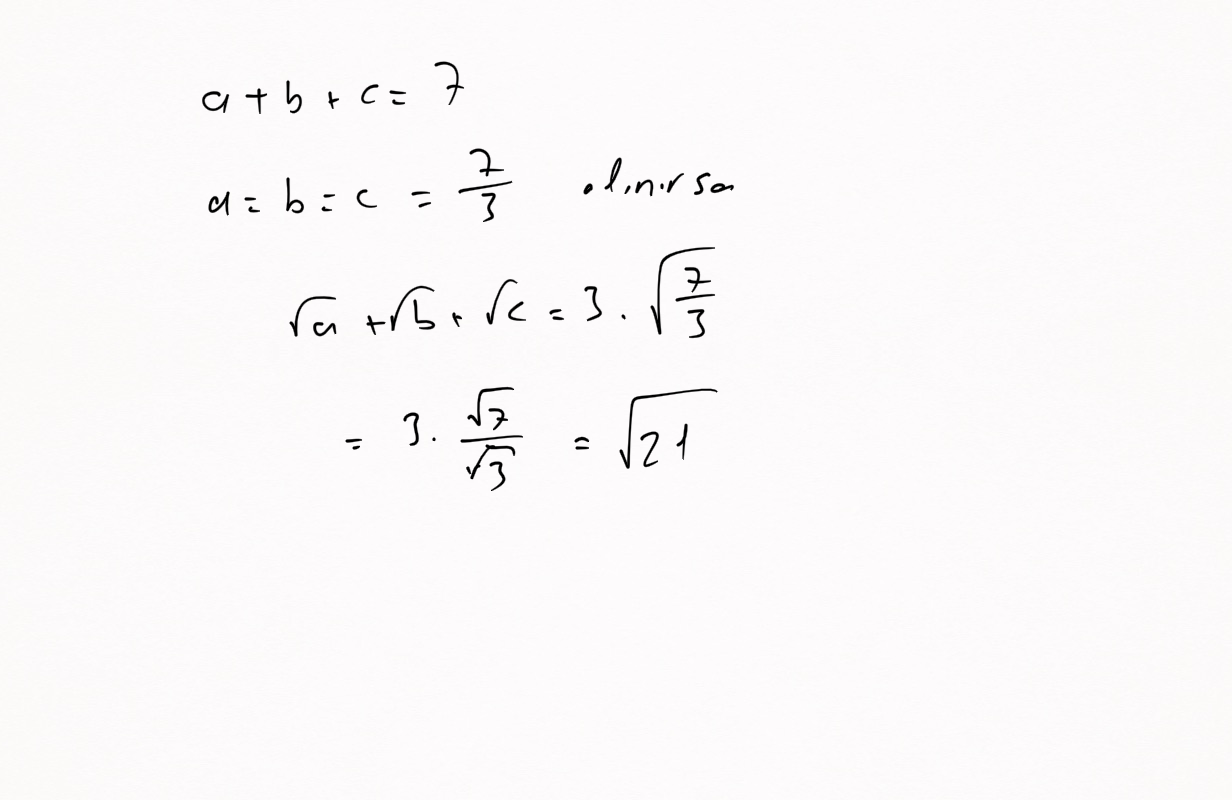 a + b + c = 7
a = b = c = 7/3 alınırsa
√a + √b + √c = 3 . √(7/3)
= 3 . √7/√3 = √21